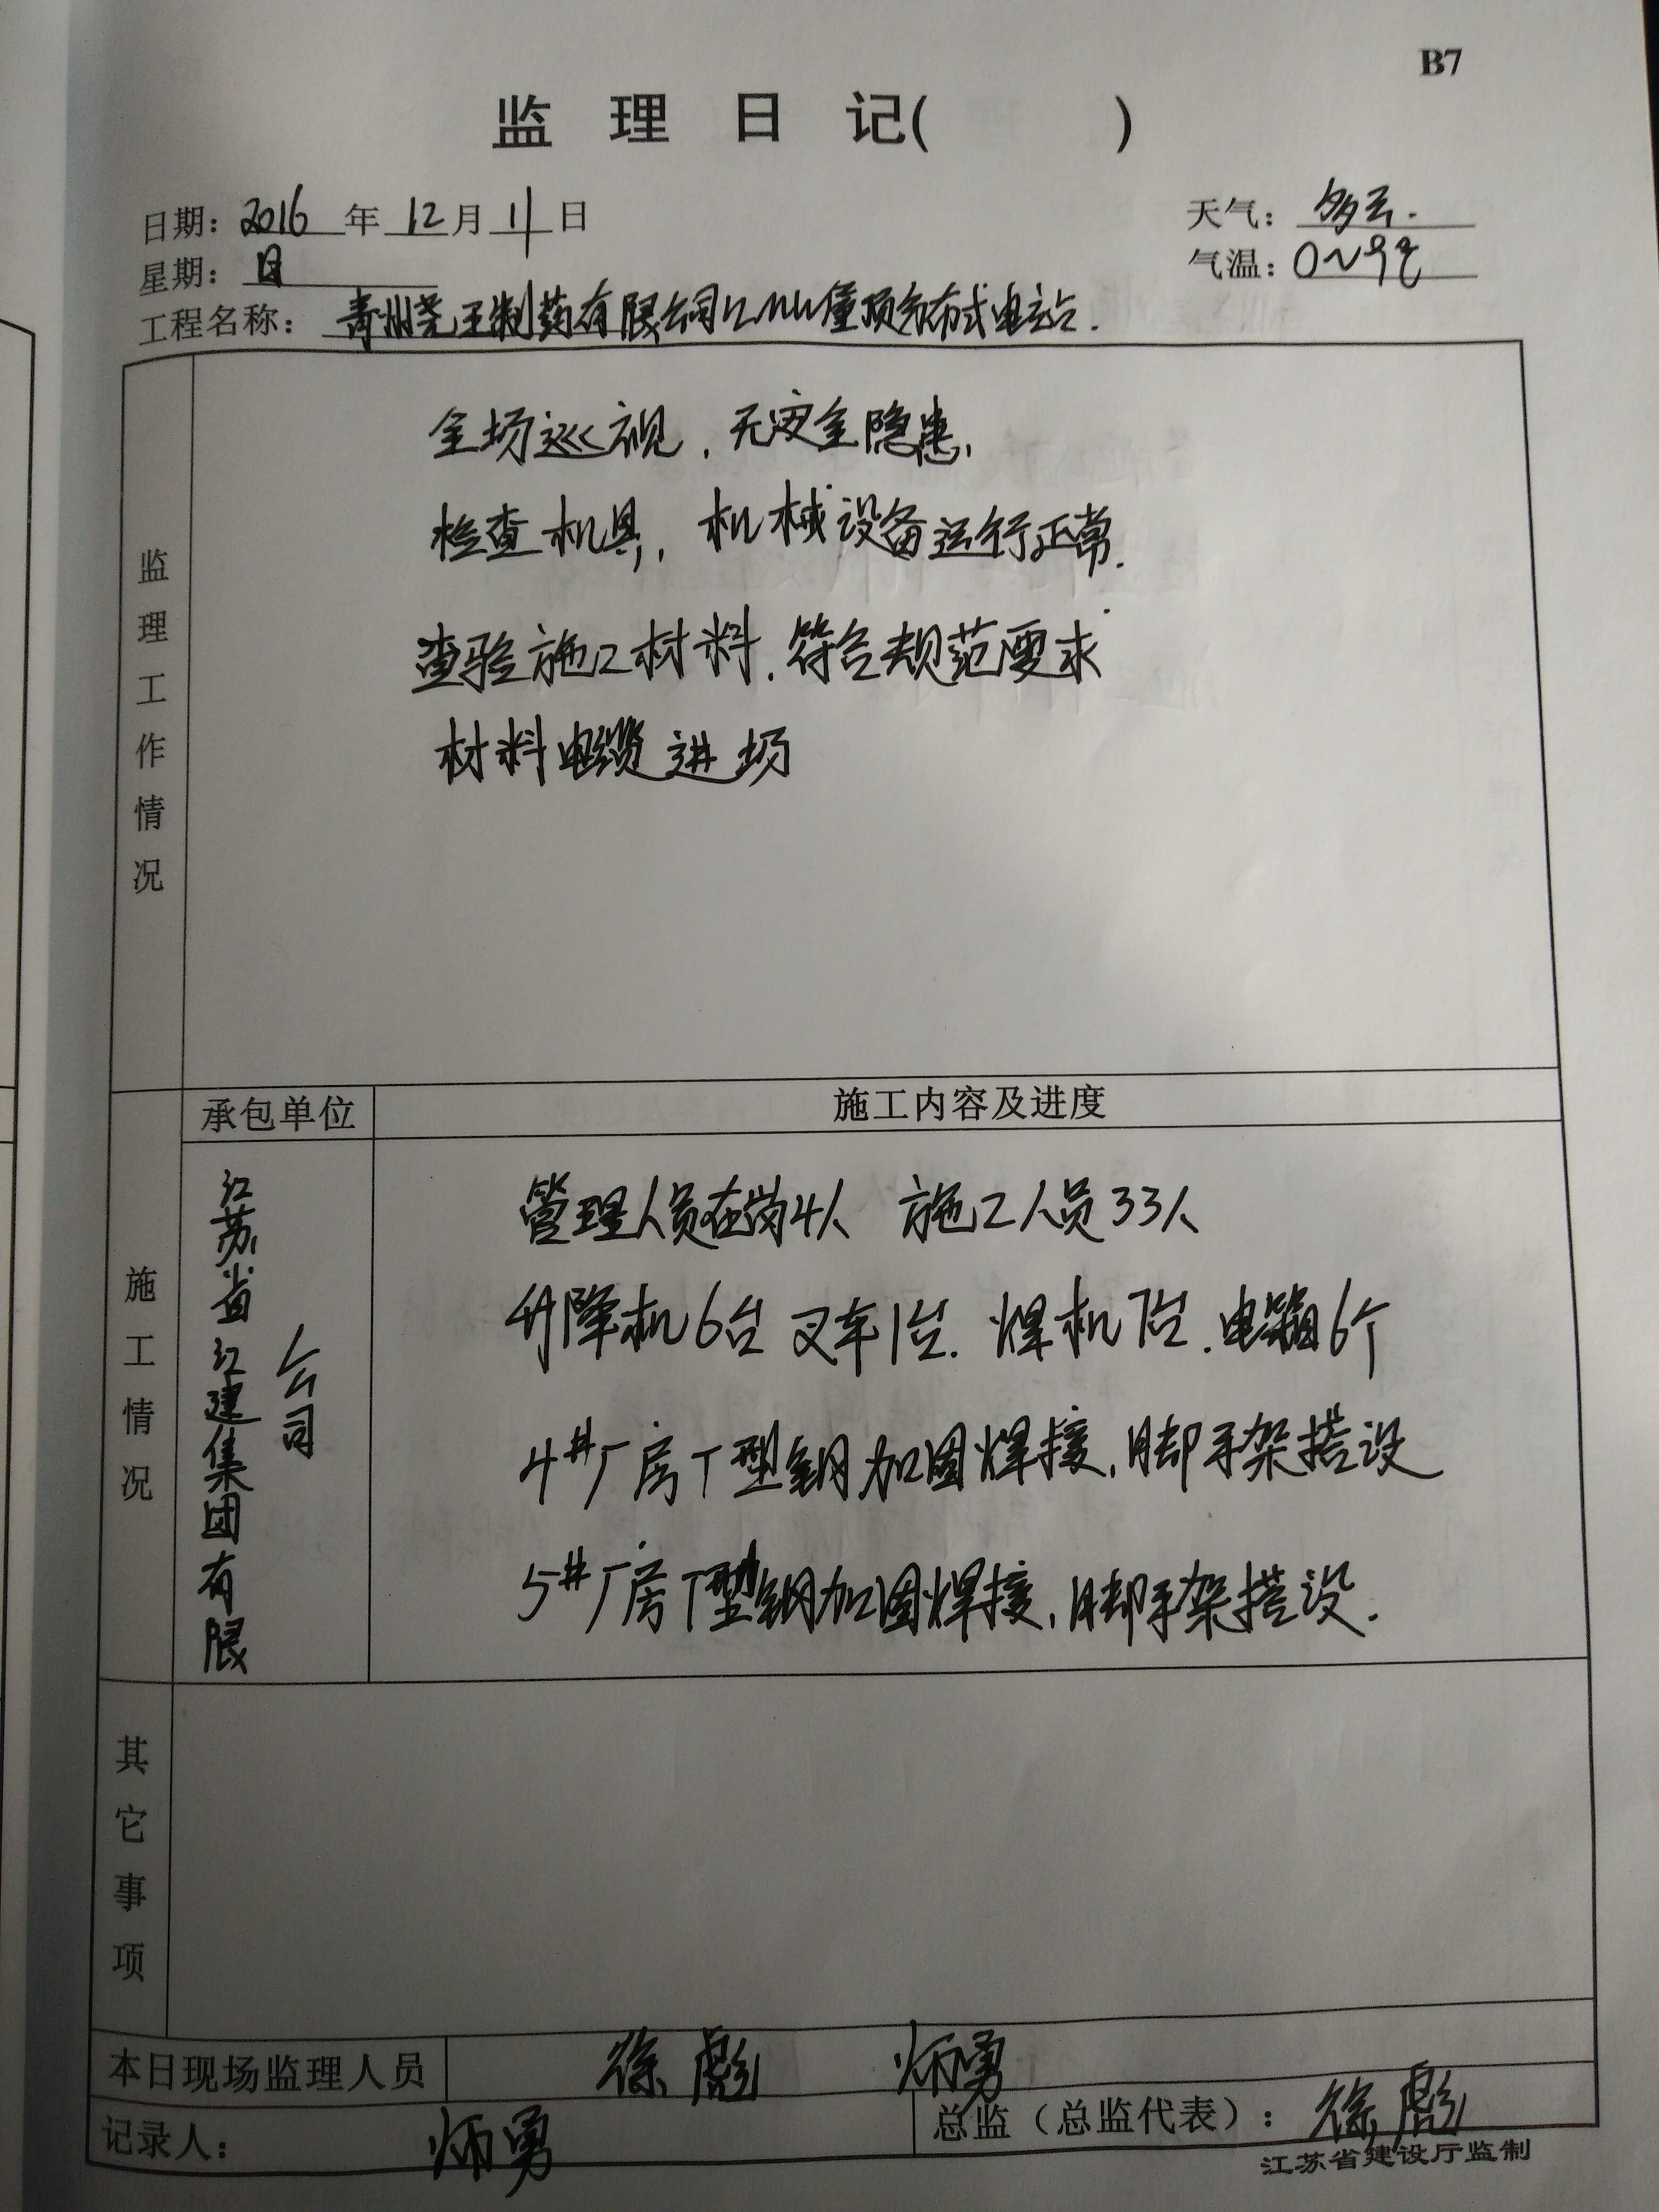 B7
监理日记( )
日期: 2016 年 12 月 11 日
天气: 多云.
星期: 日
气温: 0~9℃
工程名称: 青州尧王制药有限公司12MW屋顶分布式电站.
监理工作情况
全场巡视,无安全隐患,
检查机具,机械设备运行正常.
查验施工材料.符合规范要求
材料电缆进场
承包单位
施工内容及进度
施工情况
江苏省江建集团有限
公司
管理人员在岗4人 施工人员33人
升降机6台 叉车1台. 焊机7台.电箱6个
4#厂房T型钢加固焊接,脚手架搭设
5#厂房T型钢加固焊接,脚手架搭设.
其它事项
本日现场监理人员 徐彪 炳勇
记录人: 炳勇
总监(总监代表): 徐彪
江苏省建设厅监制